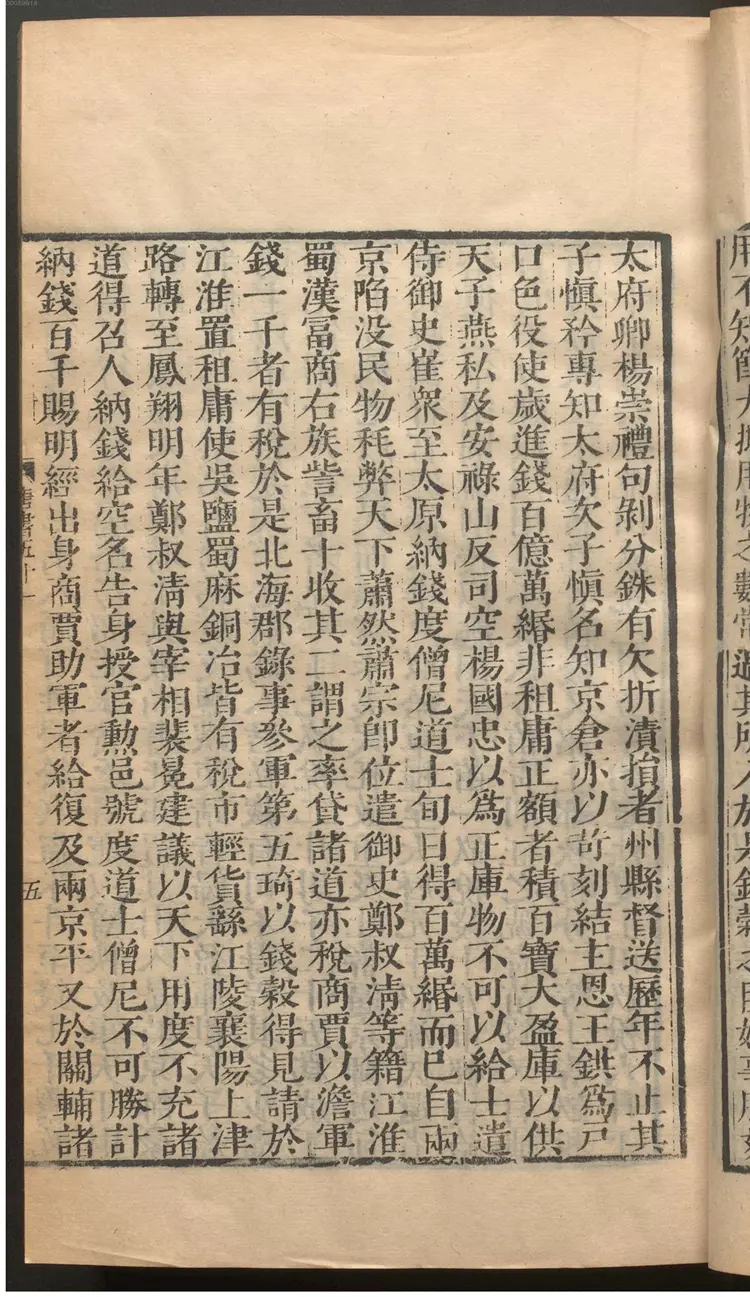 太府卿楊崇禮句剝分銖有欠折漬損者州縣督送歷年不止其
子愼矜專知太府次子愼名知京倉亦以苛刻結主恩王鉷爲戸
口色役使歲進錢百億萬緡非租庸正額者積百寶大盈庫以供
天子燕私及安祿山反司空楊國忠以爲正庫物不可以給士遣
侍御史崔衆至太原納錢度僧尼道士旬日得百萬緡而已自兩
京陷没民物耗弊天下蕭然肅宗卽位遣御史鄭叔淸等籍江淮
蜀漢富商右族訾畜十收其二謂之率貸諸道亦稅商賈以澹軍
錢一千者有稅於是北海郡錄事參軍第五琦以錢穀得見請於
江淮置租庸使吳鹽蜀麻銅冶皆有稅市輕貨繇江陵襄陽上津
路轉至鳳翔明年鄭叔淸與宰相裴冕建議以天下用度不充諸
道得召人納錢給空名告身授官勲邑號度道士僧尼不可勝計
納錢百千賜明經出身商賈助軍者給復及兩京平又於關輔諸
唐書五十一
五